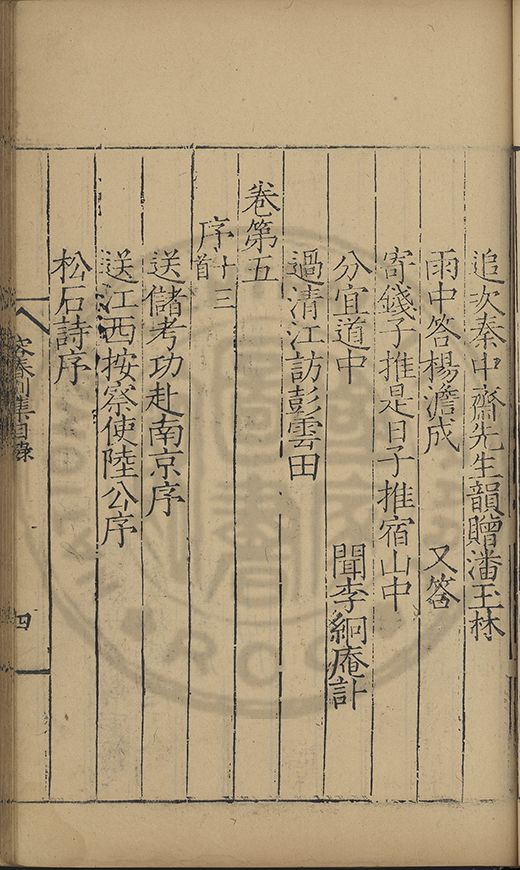 追次秦中齋先生韻贈潘玉林
雨中答楊澹成　又答
寄錢子推是日子推宿山中
分宜道中　聞李絅庵訃
過清江訪彭雲田
卷第五
序十三首
送儲考功赴南京序
送江西按察使陸公序
松石詩序
集目錄
四